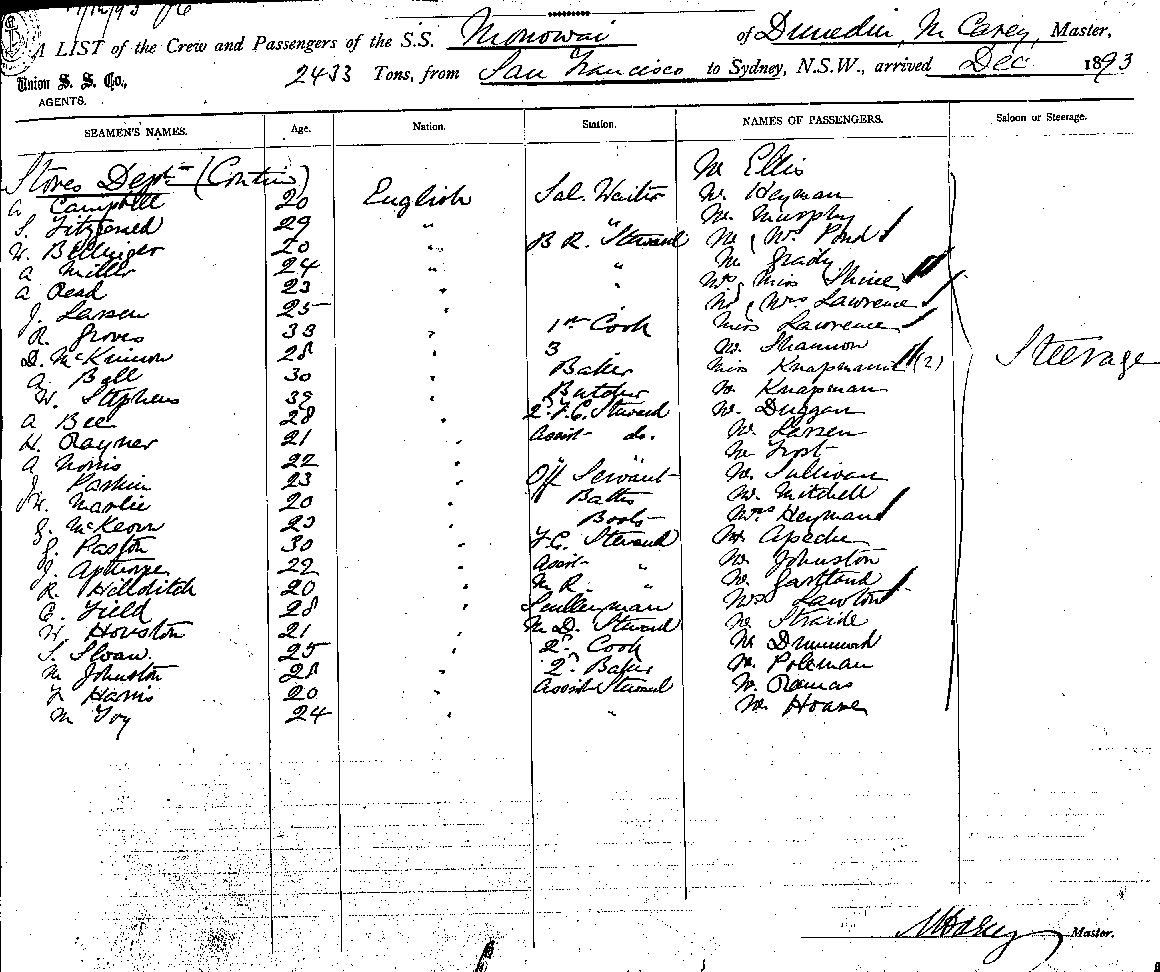 A LIST of the Crew and Passengers of the S.S. Monowai of Dunedin, M Carey, Master,
Union S. S. Co., 2433 Tons, from San Francisco to Sydney, N.S.W., arrived Dec 1893
AGENTS.
SEAMEN'S NAMES. Age. Nation. Station. NAMES OF PASSENGERS. Saloon or Steerage.
Stores Dept (Contin) Mr Ellis
A Campbell 20 English Sal. Waiter Mr Heyman
S. Fitzgerald 29 " " Mr Murphy
W. Bellinger 20 " B R. Steward Mr & Mrs Pond
A Miller 24 " " Mr Grady
A Read 23 " " Mrs Miss Shine
J. Larsen 25 " Mr & Mrs Lawrence
R. Groves 33 " 1st Cook Miss Lawrence
D. McKinnon 28 " 3 Mr Shannon Steerage
A. Ball 30 " Baker Miss Knapman (2)
W. Stephens 39 " Butcher Mr Knapman
A Bee 28 " 2d F.C. Steward Mr Duggan
H. Rayner 21 " Assist do. Mr Larsen
A Norris 22 " " Mr Frost
J. Parkin 23 " Off Servant Mr Sullivan
W. Marlie 20 " Baths Mr Mitchell
J. McKeown 23 " Boots Mrs Heyman
J. Paston 30 " F.C. Steward Mr Apedu
J. Apthorpe 22 " Assist " Mr Johnston
R. Hillditch 20 " M R. " Mr Gartland
C. Field 28 " Sculleryman Mrs Lawton
W. Houston 21 " M D. Steward Mr Straide
S. Sloan. 25 " 2d Cook Mr Drummond
M Johnston 28 " 2d Baker Mr Poleman
F Harris 20 " Assist Steward Mr Ramas
M Foy 24 " " Mr Hoare
Master.